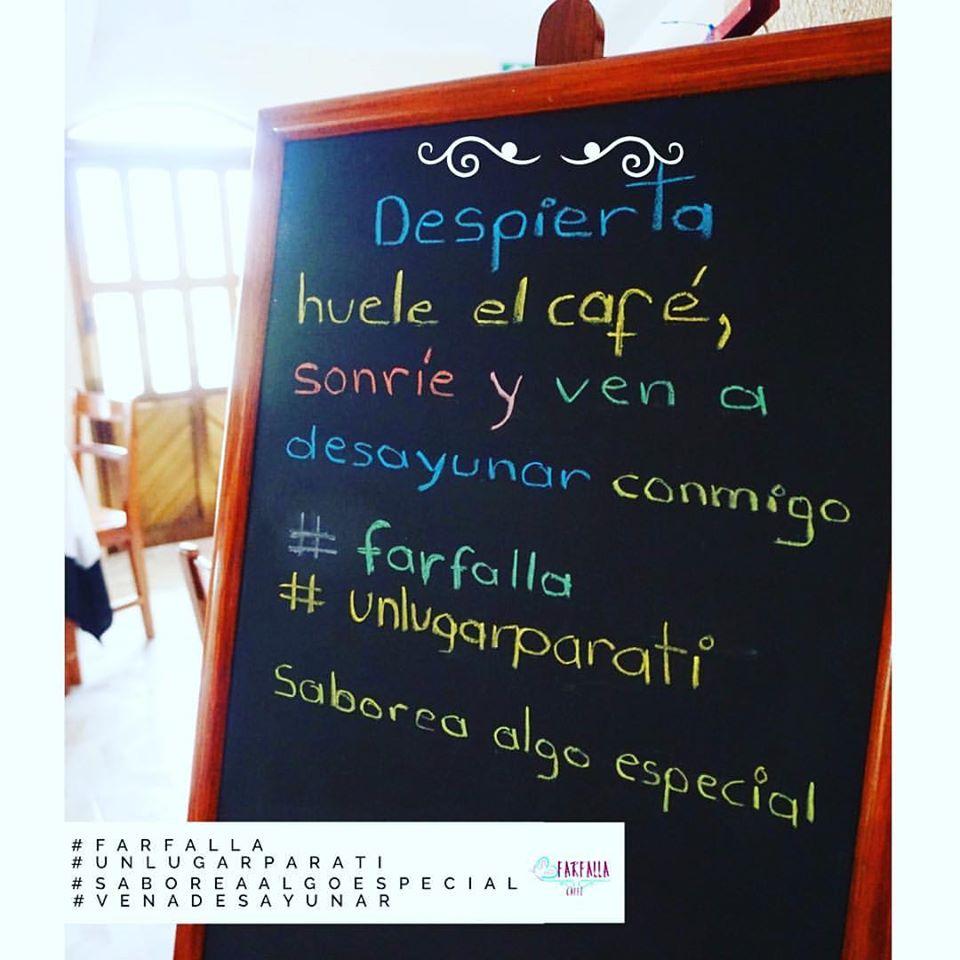 Despierta
huele el café,
sonríe y ven a
desayunar conmigo
# farfalla
# unlugarparati
Saborea algo especial
#FARFALLA
#UNLUGARPARATI
#SABOREAALGOESPECIAL
#VENADESAYUNAR
FARFALLA
CAFFÉ